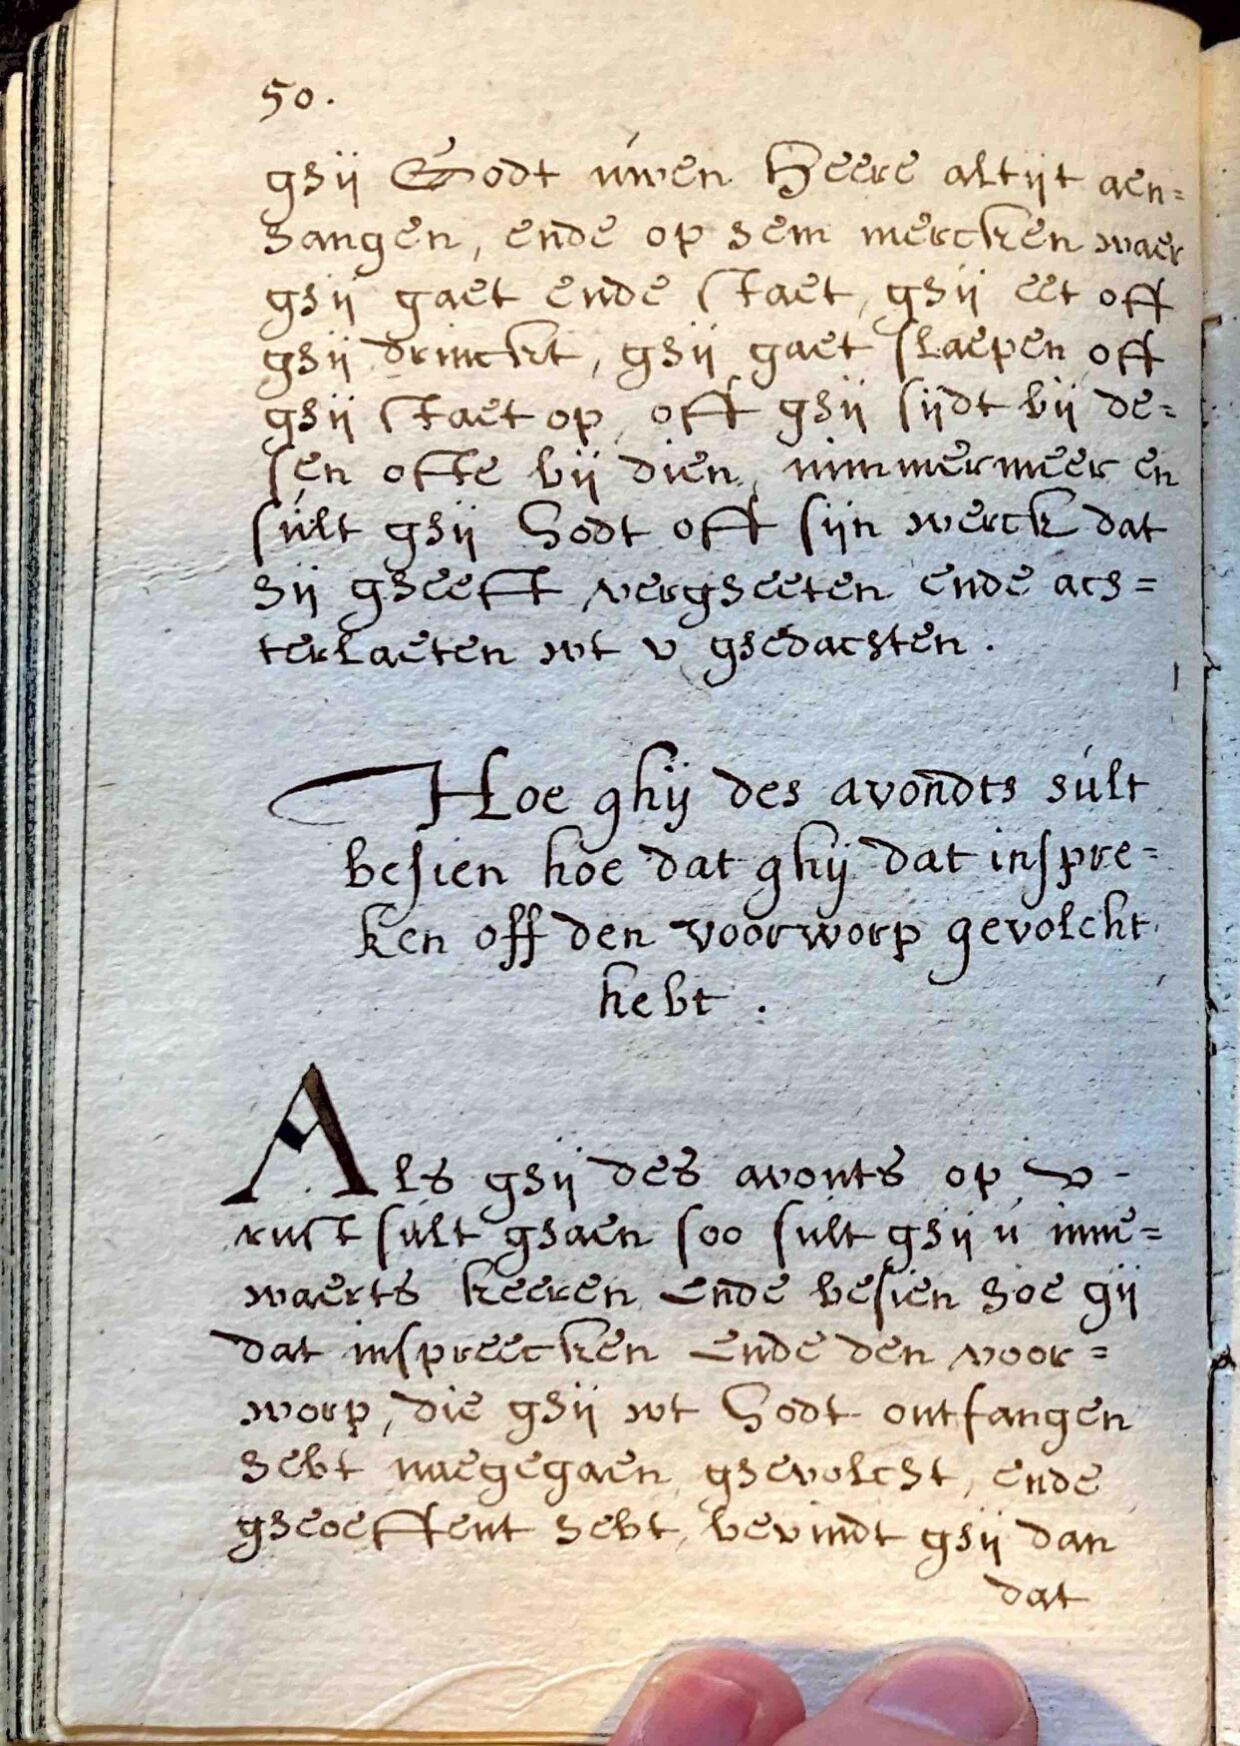 50.
ghij Godt úwen Heere altijt aen=
hangen, ende op hem mercken waer
ghij gaet ende staet, ghij eet off
ghij drinckt, ghij gaet slaepen off
ghij staet op, off ghij sijdt bij de=
sen ofte bij dien, nimmermeer en
súlt ghij Godt off sijn werck dat
hij gheeft vergheeten ende ach=
terlaeten wt v ghedachten.
Hoe ghij des avondts súlt
besien hoe dat ghij dat inspre=
ken off den voorworp gevolcht
hebt.
Als ghij des avonts op v-
rust súlt ghaen soo súlt ghij ú inne=
waerts keeren ende besien hoe gij
dat inspreecken ende den voor=
worp, die ghij wt Godt ontfangen
hebt naegegaen, ghevolcht, ende
gheoeffent hebt, bevindt ghij dan
dat